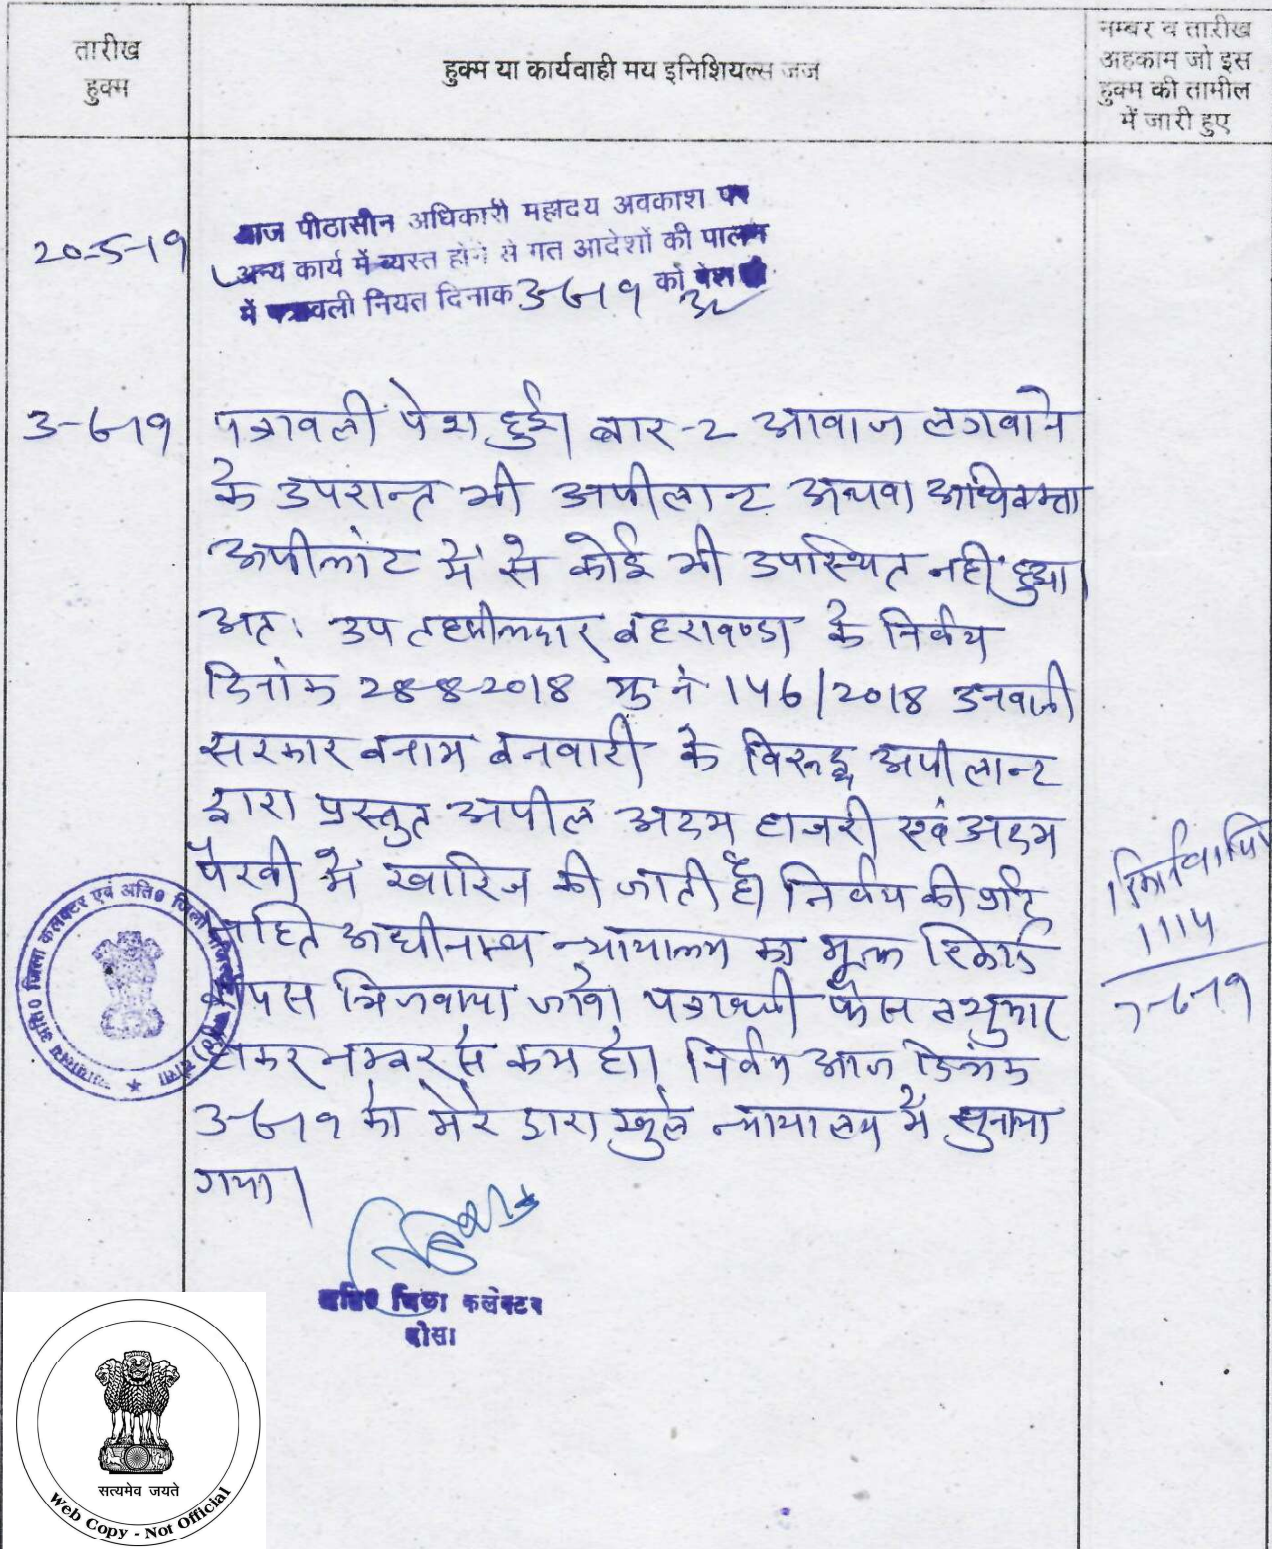 तारीख
हुक्म
हुक्म या कार्यवाही मय इनिशियल्स जज
नम्बर व तारीख
अहकाम जो इस
हुक्म की तामील
में जारी हुए
20-5-19
आज पीठासीन अधिकारी महोदय अवकाश पर
अन्य कार्य में व्यस्त होने से गत आदेशों की पालना
में पत्रावली नियत दिनाक 3-6-19 को पेश हो
3-6-19
पत्रावली पेश हुई। बार-2 आवाज लगवाने
के उपरान्त भी अपीलान्ट अथवा अधिवक्ता
अपीलांट में से कोई भी उपस्थित नहीं हुआ।
अतः उप तहसीलदार बहरावण्डा के निर्णय
दिनांक 28-8-2018 मु नं 146/2018 उनवानी
सरकार बनाम बनवारी के विरूद्ध अपीलान्ट
द्वारा प्रस्तुत अपील अदम हाजरी एवं अदम
पैरवी में खारिज की जाती है। निर्णय की प्रति
सहित अधीनस्थ न्यायालय का मूल रिकार्ड
वापस भिजवाया जावे। पत्रावली फैसल शुमार
होकर नम्बर से कम हो। निर्णय आज दिनांक
3-6-19 को मेरे द्वारा खुले न्यायालय में सुनाया
गया।
1114
7-6-19
अति० जिला कलेक्टर
दौसा
कार्यालय अति० जिला कलक्टर एवं अति० जिला दौसा
सत्यमेव जयते
Web Copy - Not Official